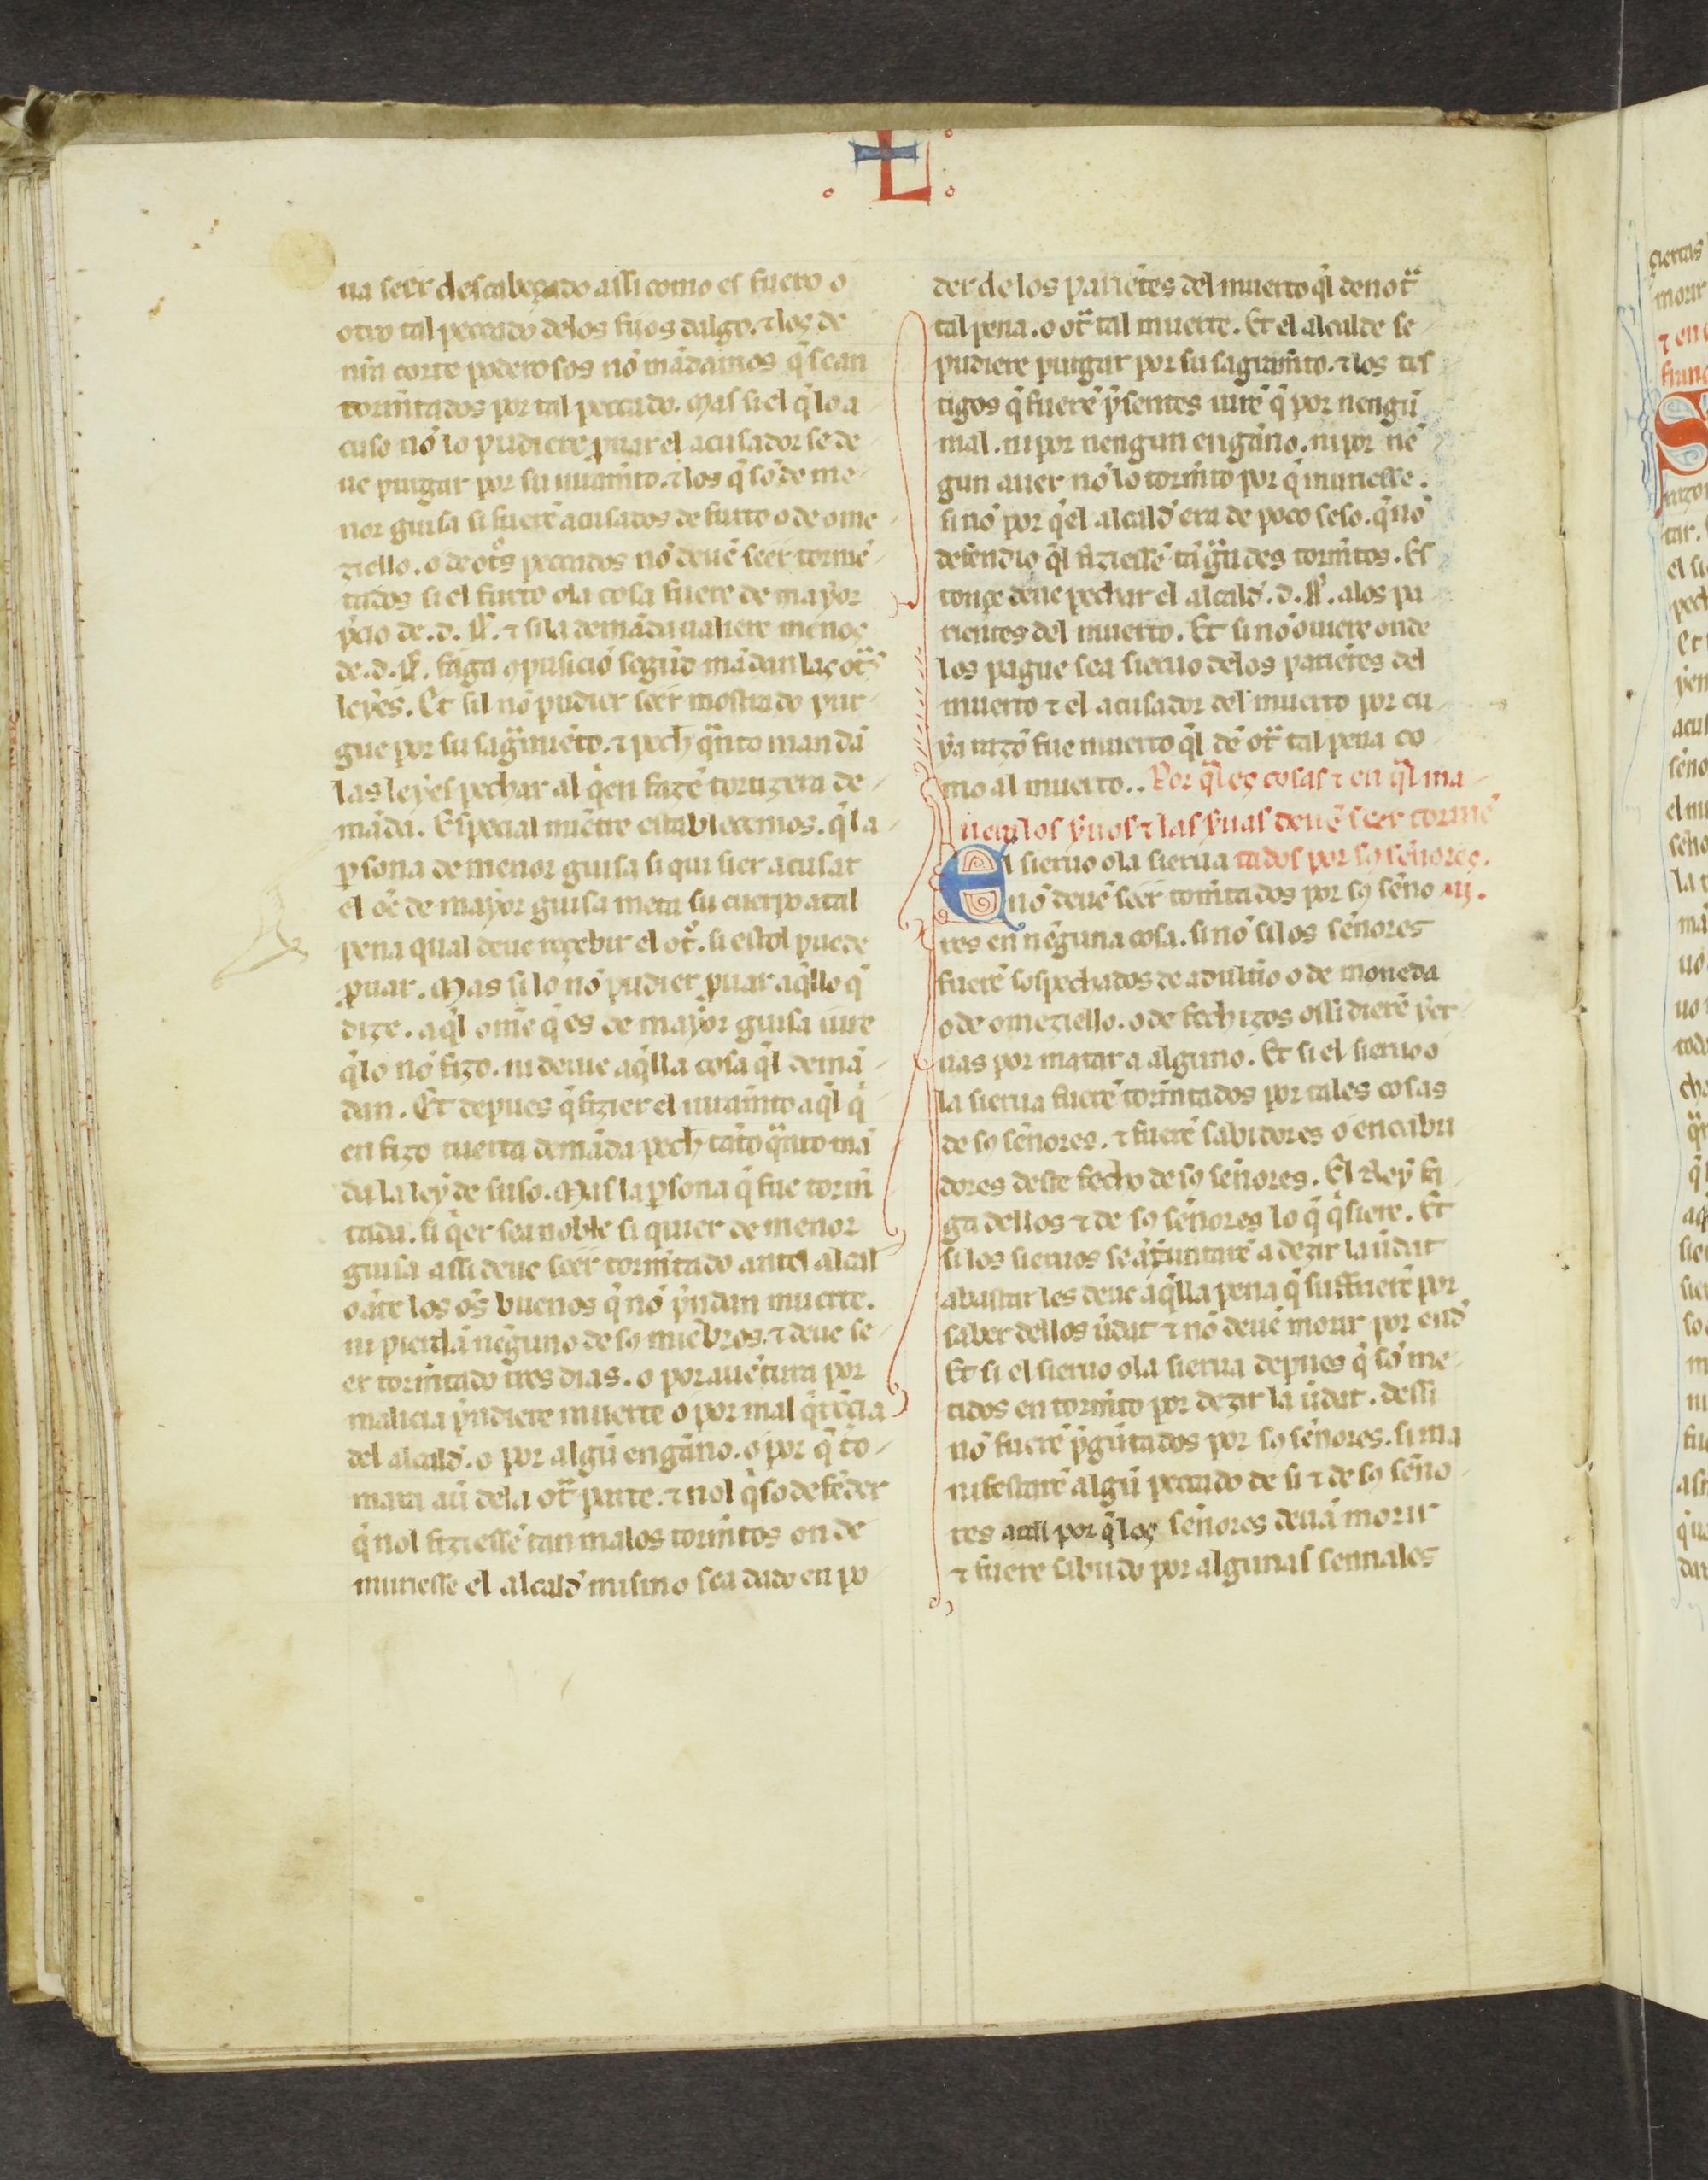 L
ua seer descabeçado assi como es fuero o
otro tal peccado delos fijos dalgo. ⁊ los de
nr̃a corte poderosos nõ mãdamos q̃ sean
torm̃tados por tal peccado. Mas si el q̃ lo a
cuso nõ lo pudiere prouar el acusador se de
ue purgar por su iuram̃to. ⁊ los q̃ sõ de me
nor guisa si fuerẽ acusados de furto o de ome
ziello. o de otr̃s peccados nõ deuẽ seer tormẽ
tados si el furto o la cosa fuere de mayor
p̃cio de .d. ff̃. ⁊ si la demãda ualiere menos
de .d. ff̃. faga 9pusiciõ segũd mãdan las otr̃s
leyes. Et sil nõ pudier seer mostrado pur
gue por su sagr̃mẽto. ⁊ pech q̃nto mandã
las leyes pechar al q̃en fazẽ tortizera de
mãda. Especial miẽtre establecemos. q̃ la
p̱sona de menor guisa si quisier acusar
el oẽ de mayor guisa meta su cuerpo atal
pena qual deue reçebir el otr̃. si estol puede
p̱uar. Mas si lo nõ pudier p̱uar aq̃llo q̃
dize. aq̃l ome q̃ es de mayor guisa iure
q̃ lo nõ fizo. ni deue aq̃lla cosa q̃l demã
dan. Et depues q̃ fizier el iuram̃to aq̃l q̃
en fizo tuerta demãda pech tãto q̃nto mã
da la ley de suso. Mas la p̱sona q̃ fue torm̃
tada. si q̃er sea noble si quier de menor
guisa assi deue seer torm̃tado antel alcal
o ãte los os̃ buenos q̃ nõ p̃ndan muerte.
ni pierdã neguno de sos miẽbros. ⁊ deue se
er torm̃tado tres dias. o por auẽtura por
malicia p̃ndiere muerte o por mal q̃rẽcia
del alcald̃. o por algũ engãno. o por q̃ to
mara auer̃ dela otr̃ parte. ⁊ nol q̃so defẽder
q̃ nol fiziessẽ tan malos torm̃tos onde
muriesse el alcald̃ mismo sea dado en po
der de los pariẽtes del muerto q̃l den otr̃
tal pena. o otr̃ tal muerte. Et el alcalde se
pudiere purgar por su sagram̃to. ⁊ los tes
tigos q̃ fuerẽ p̃sentes iurẽ q̃ por nengũ
mal. ni por nengun engãno. ni por nẽ
gun auer nõ lo torm̃to por q̃ muriesse.
si nõ por q̃ el alcald̃ era de poco seso. q̃ nõ
defendio q̃l fiziessẽ tã gr̃ndes torm̃tos. Es
tonçe deue pechar el alcald̃ .d. ff̃. alos pa
rientes del muerto. Et si nõ ouiere onde
los pague sea sieruo delos pariẽtes del
muerto ⁊ el acusador del muerto por cu
ya razõ fue muerto q̃l dẽ otr̃ tal pena co
mo al muerto.. Por q̃les cosas ⁊ en q̃l ma
nera los s̃uos ⁊ las s̃uas deuẽ seer tormẽ
El sieruo o la sierua tados por sos señores.
nõ deuẽ seer torm̃tados por sos sẽno iiij.
res en nẽguna cosa. si nõ si los señores
fuerẽ sospechados de adult̃io o de moneda
o de omeziello. o de fechizos o ssi dierẽ yer
uas por matar a alguno. Et si el sieruo o
la sierua fuerẽ torm̃tados por tales cosas
de sos sẽnores. ⁊ fuerẽ sabidores o encubri
dores deste fecho de sos señores. El Rey fa
ga dellos ⁊ de sos señores lo q̃ q̃siere. Et
si los sieruos se auẽturarẽ a dezir la ũdat
abastar les deue aq̃lla pena q̃ suffrierẽ por
saber dellos ũdat ⁊ nõ deuẽ morir por end̃
Et si el sieruo o la sierua depues q̃ sõ me
tidos en torm̃to por dezir la ũdat. dessi
nõ fuerẽ p̃gũtados por sos sẽnores. si ma
nifestarẽ algũ peccado de si ⁊ de sos sẽno
res atal por q̃ los señores deuã morir
⁊ fuere sabudo por algunas sennales